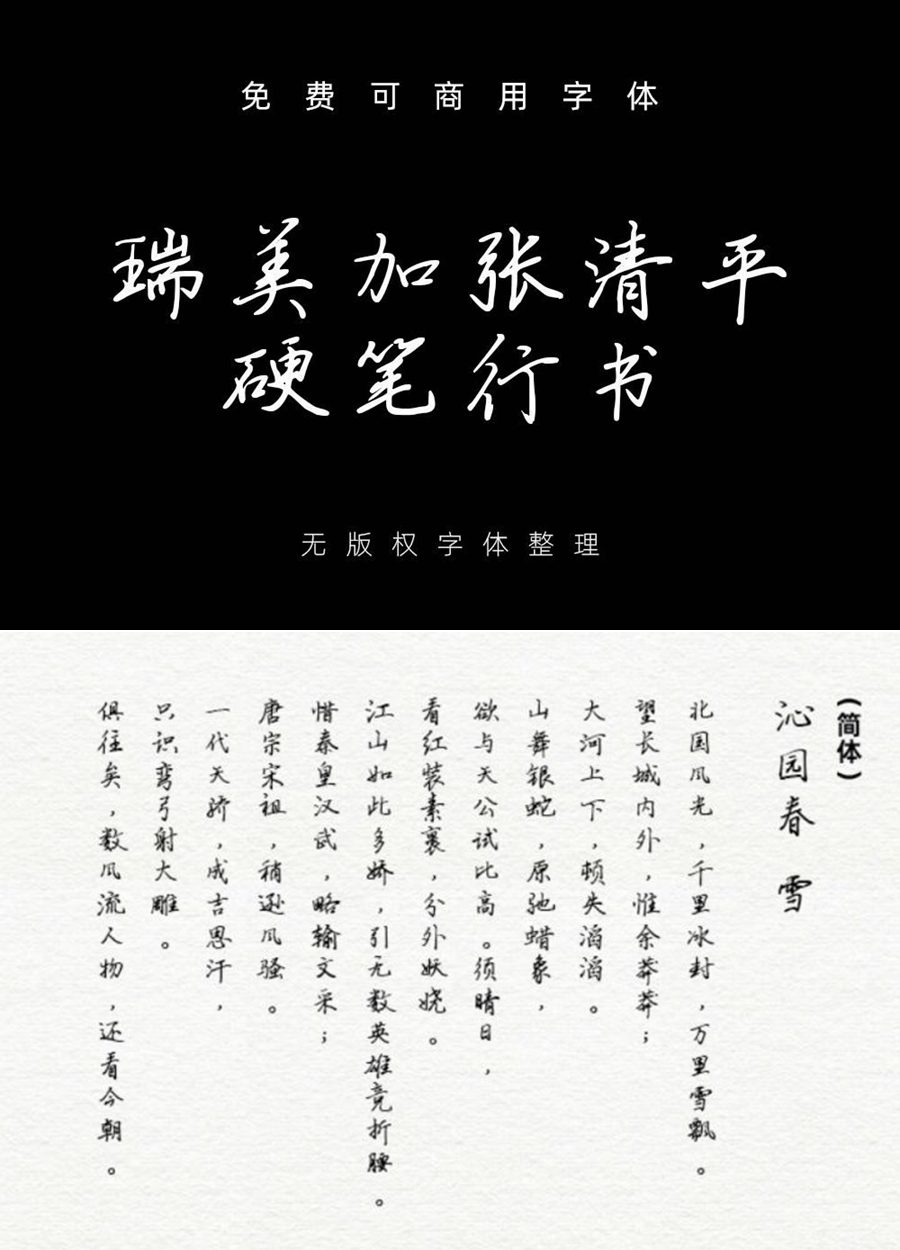 免费可商用字体
瑞美加张清平
硬笔行书
无版权字体整理
(简体)
沁园春 雪
北国风光,千里冰封,万里雪飘。
望长城内外,惟余莽莽;
大河上下,顿失滔滔。
山舞银蛇,原驰蜡象,
欲与天公试比高。须晴日,
看红装素裹,分外妖娆。
江山如此多娇,引无数英雄竞折腰。
惜秦皇汉武,略输文采;
唐宗宋祖,稍逊风骚。
一代天骄,成吉思汗,
只识弯弓射大雕。
俱往矣,数风流人物,还看今朝。